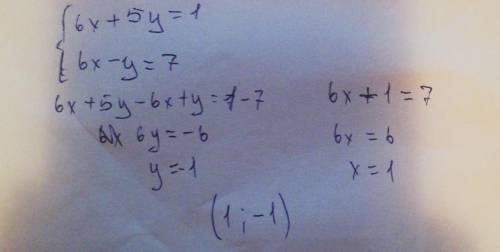 6x+5y=1
6x-y=7
6x+5y-6x+y=1-7
6y=-6
y=-1
6x+1=7
6x=6
x=1
(1;-1)